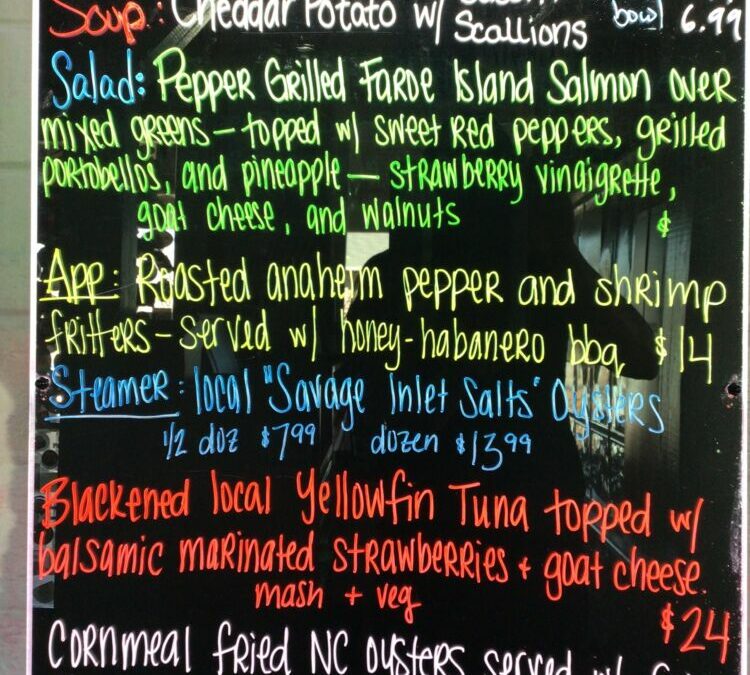 Soup: Cheddar Potato w/ Scallions bowl 6.99
Salad: Pepper Grilled Faroe Island Salmon over
mixed greens - topped w/ sweet red peppers, grilled
portobellos, and pineapple - strawberry vinaigrette,
goat cheese, and walnuts $
App: Roasted anaheim pepper and shrimp
fritters - served w/ honey-habanero bbq $14
Steamer: local "Savage Inlet Salts" Oysters
1/2 doz $7.99 dozen $13.99
Blackened local Yellowfin Tuna topped w/
balsamic marinated strawberries + goat cheese.
mash + veg
$24
Cornmeal fried NC oysters served w/